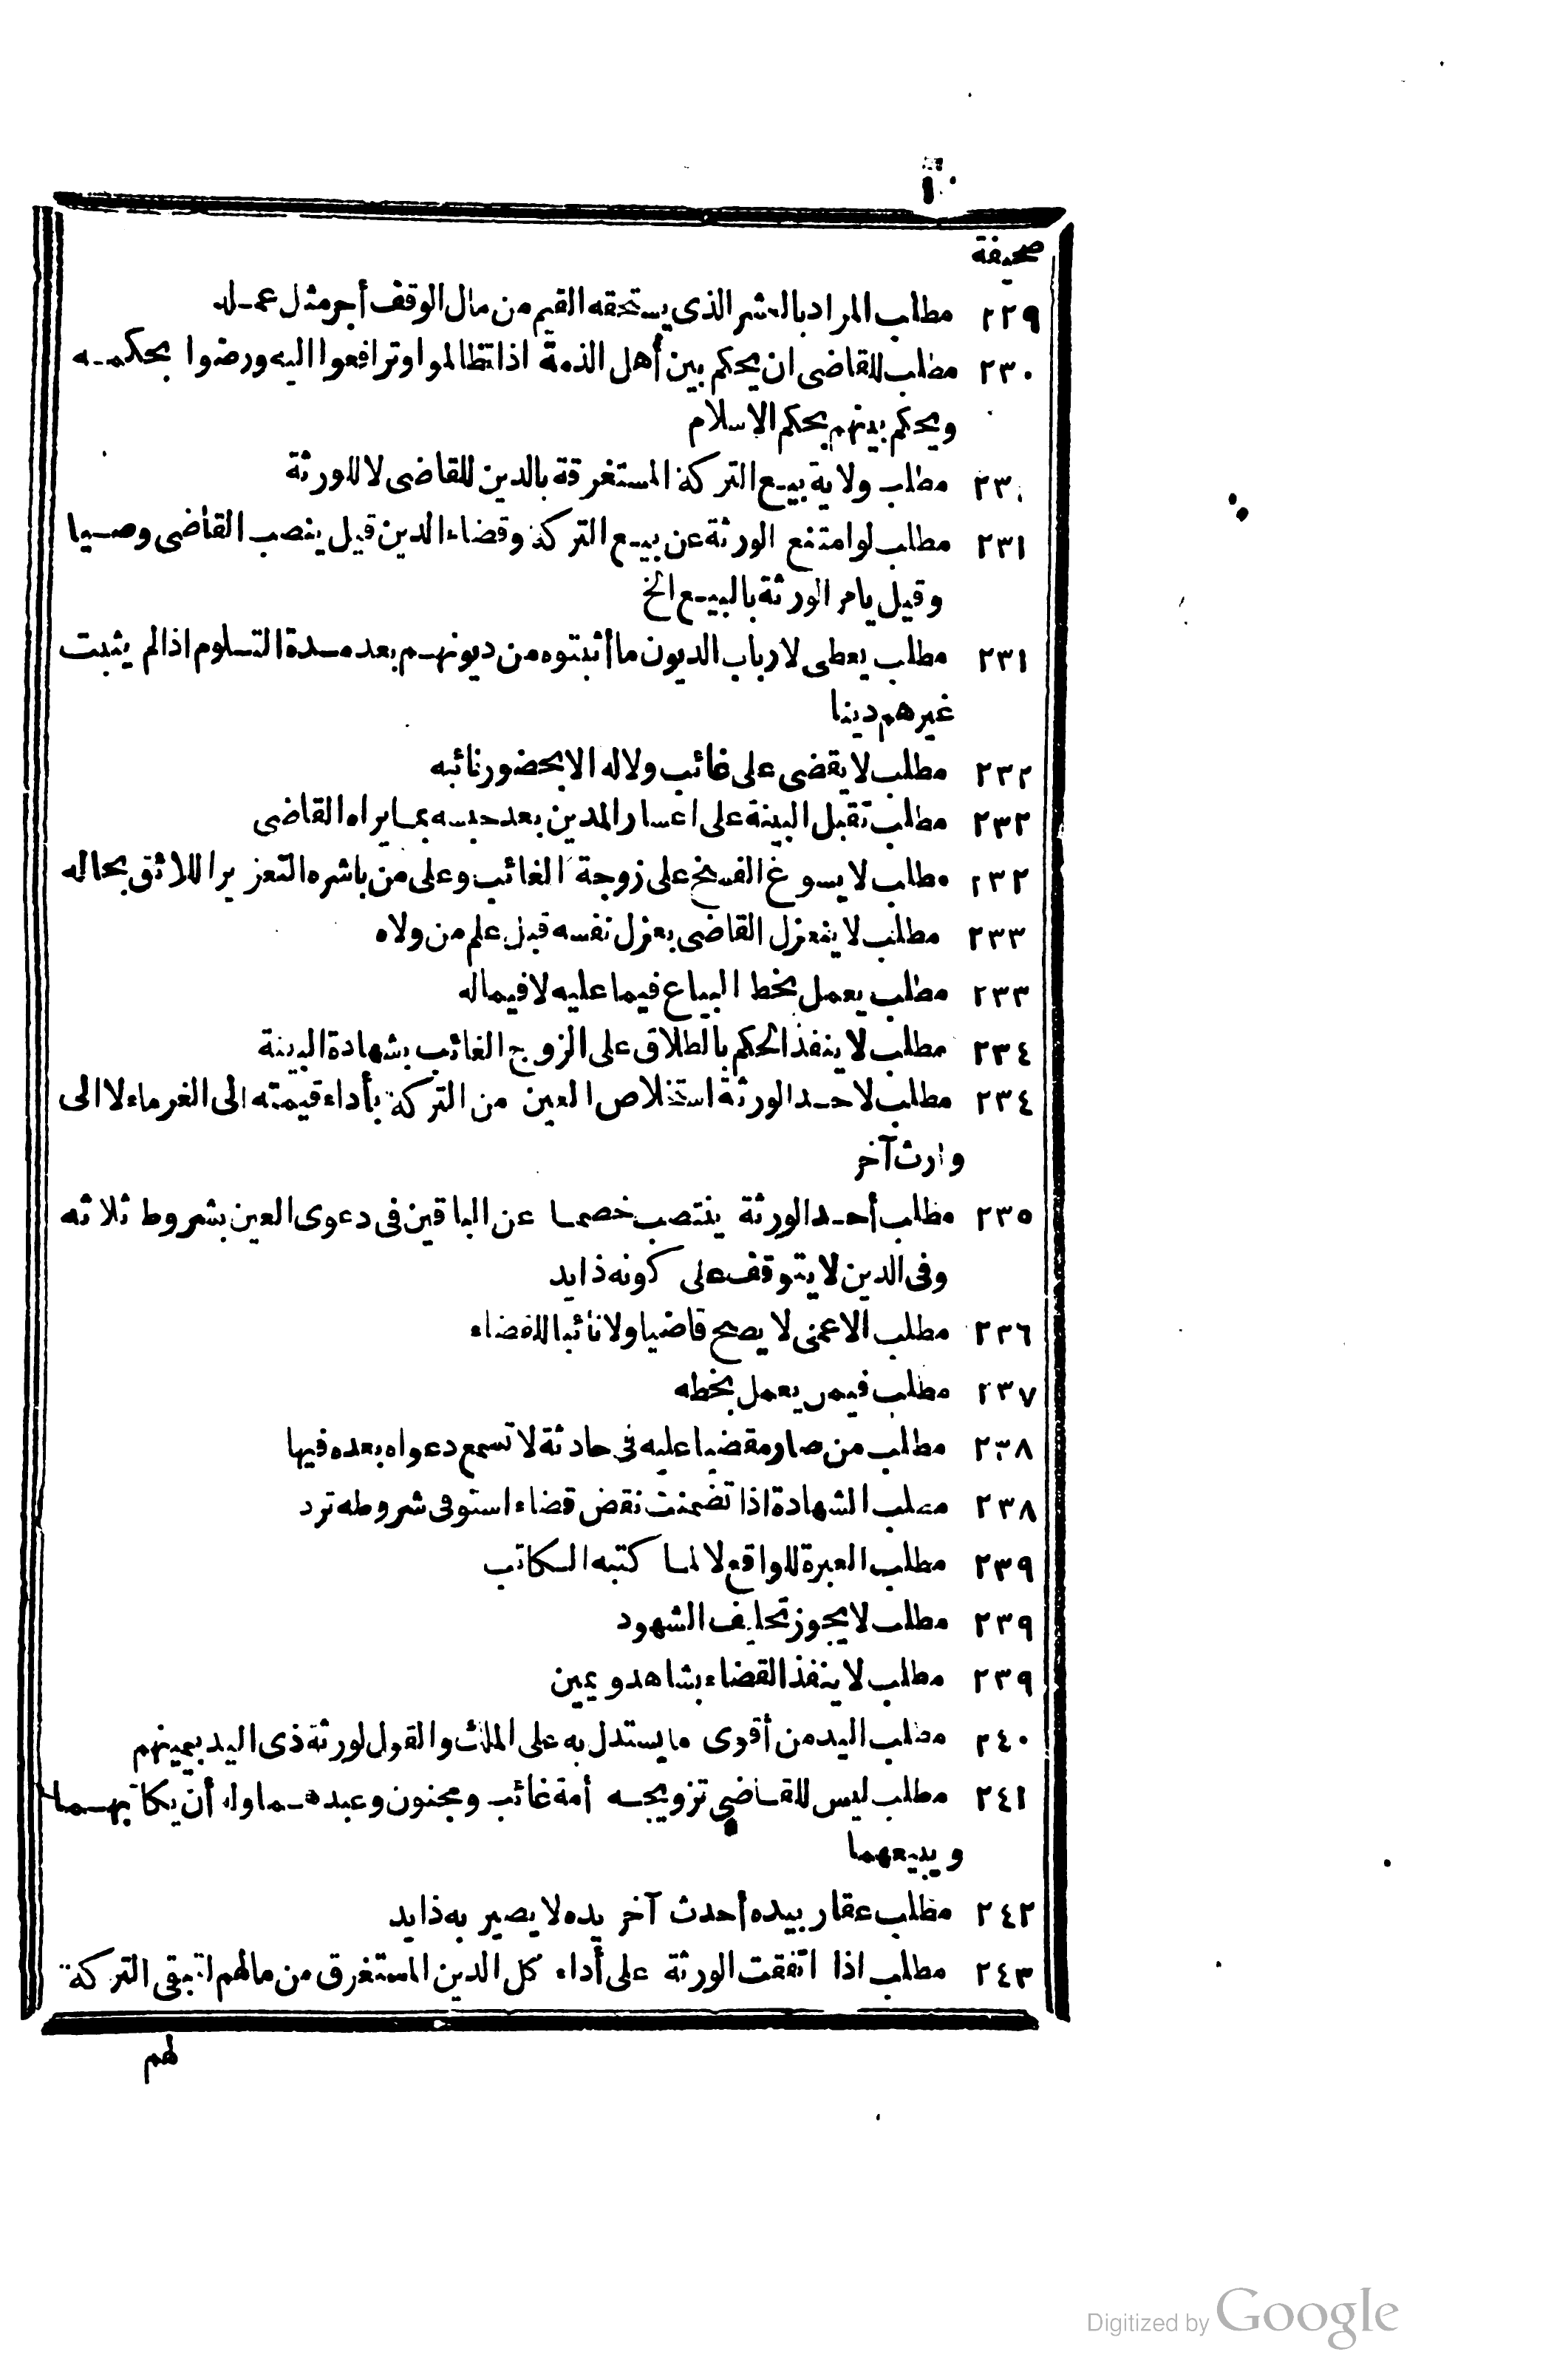 ١٠
صحيفة
٢٢٩ مطلب المراد بالعشر الذى يستحقه القيم من مال الوقف أجر مثل عمله
٢٣٠ مطلب للقاضى ان يحكم بين أهل الذمة اذا تظالموا وترافعوا اليه ورضوا بحكمه
ويحكم بينهم بحكم الاسلام
٢٣٠ مطلب ولاية بيع التركة المستغرقة بالدين للقاضى لا للورثة
٢٣١ مطلب لو امتنع الورثة عن بيع التركة وقضاء الدين قيل ينصب القاضى وصيا
وقيل يامر الورثة بالبيع الخ
٢٣١ مطلب يعطى لارباب الديون ما أثبتوه من ديونهم بعد مدة التلوم اذا لم يثبت
غيرهم دينا
٢٣٢ مطلب لا يقضى على غائب ولا له الا بحضور نائبه
٢٣٢ مطلب تقبل البينة على اعسار المدين بعد حبسه بما يراه القاضى
٢٣٢ مطلب لا يسوغ الفسخ على زوجة الغائب وعلى من باشره التعزير اللائق بحاله
٢٣٣ مطلب لا ينعزل القاضى بعزل نفسه قبل علم من ولاه
٢٣٣ مطلب يعمل بخط البياع فيما عليه لا فيما له
٢٣٤ مطلب لا ينفذ الحكم بالطلاق على الزوج الغائب بشهادة البينة
٢٣٤ مطلب لاحد الورثة استخلاص العين من التركة بأداء قيمته الى الغرماء لا الى
وارث آخر
٢٣٥ مطلب أحد الورثة ينتصب خصما عن الباقين فى دعوى العين بشروط ثلاثه
وفى الدين لا يتوقف على كونه ذا يد
٢٣٦ مطلب الاعمى لا يصح قاضيا ولا نائبا للقضاء
٢٣٧ مطلب فيمن يعمل بخطه
٢٣٨ مطلب من صار مقضيا عليه فى حادثة لا تسمع دعواه بعده فيها
٢٣٨ مطلب الشهادة اذا تضمنت نقض قضاء استوفى شروطه ترد
٢٣٩ مطلب العبرة للواقع لا لما كتبه الكاتب
٢٣٩ مطلب لا يجوز تحليف الشهود
٢٣٩ مطلب لا ينفذ القضاء بشاهد ويمين
٢٤٠ مطلب اليد من أقوى ما يستدل به على الملك والقول لورثة ذى اليد بيمينهم
٢٤١ مطلب ليس للقاضى تزويجه أمة غائب ومجنون وعبدهما وله أن يكاتبهما
ويبيعهما
٢٤٢ مطلب عقار بيده أحدث آخر يده لا يصير به ذا يد
٢٤٣ مطلب اذا اتفقت الورثة على أداء كل الدين المستغرق من مالهم لتبقى التركة
لهم
Digitized by Google